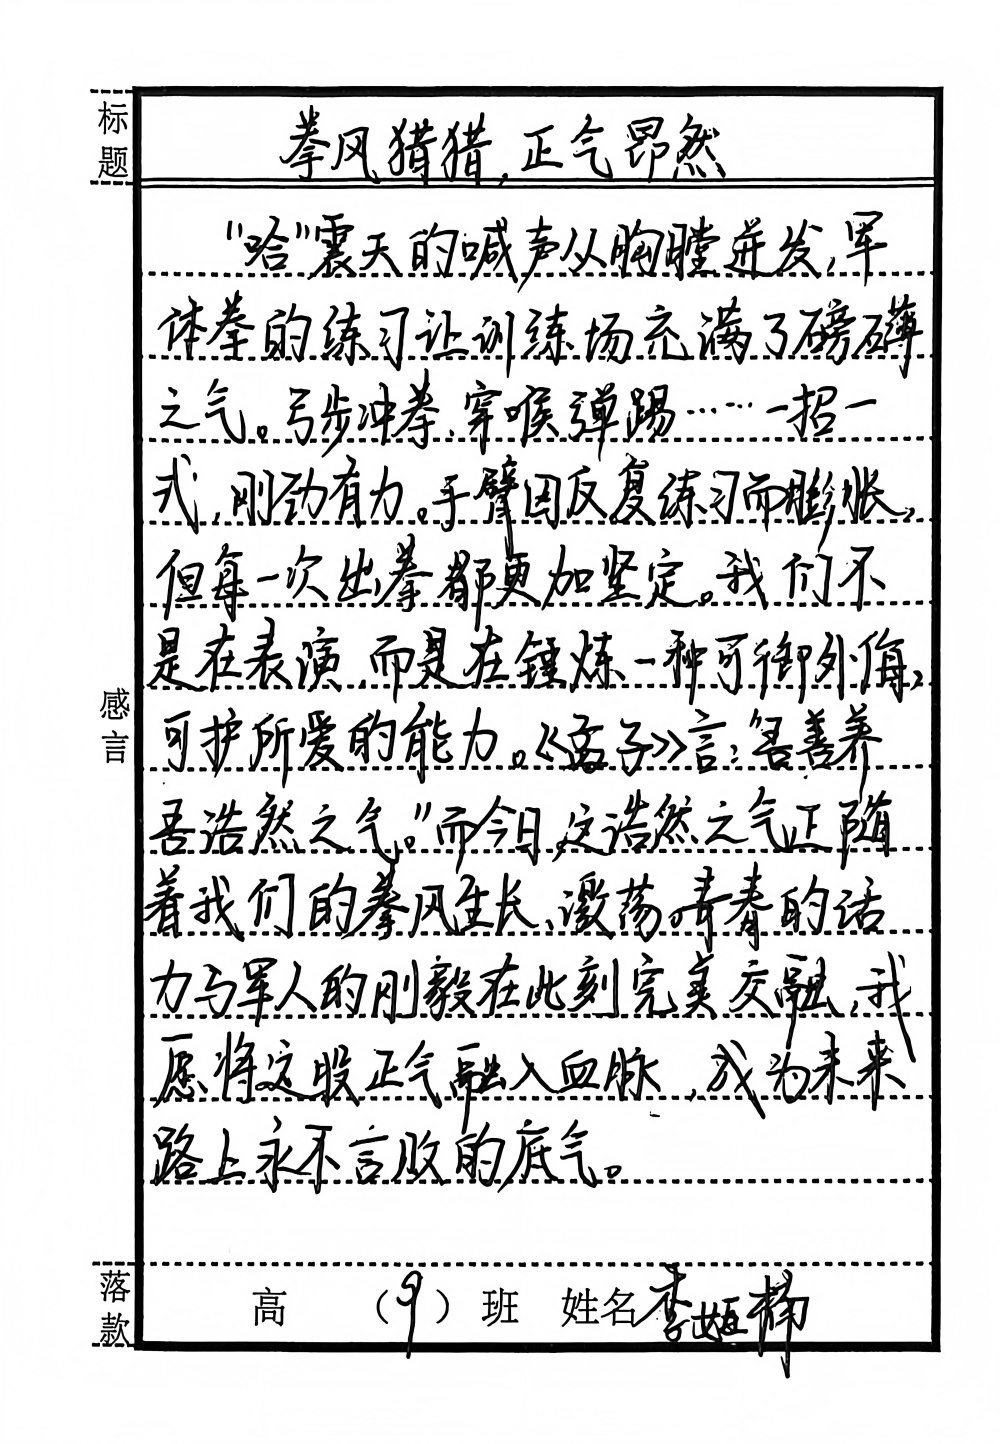 标题
拳风猎猎，正气昂然
"哈"震天的喊声从胸膛迸发，军
体拳的练习让训练场充满了磅礴
之气。弓步冲拳、穿喉弹踢……一招一
式，刚劲有力。手臂因反复练习而膨胀，
但每一次出拳都更加坚定。我们不
是在表演，而是在锤炼一种可御外侮，
可护所爱的能力。《孟子》言："吾善养
吾浩然之气。"而今日，这浩然之气正随
着我们的拳风生长、激荡。青春的活
力与军人的刚毅在此刻完美交融，我
愿将这股正气融入血脉，成为未来
路上永不言败的底气。
感言
落款
高 （9）班 姓名 李